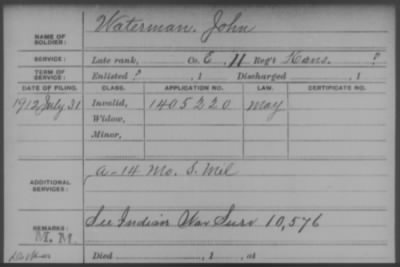 NAME OF SOLDIER: Waterman, John
SERVICE: Late rank, Co. E, 11 Reg't Kans. ?
TERM OF SERVICE: Enlisted ?, 1 Discharged , 1
DATE OF FILING. CLASS. APPLICATION NO. LAW. CERTIFICATE NO.
1912 July 31 Invalid, 1405220 May
Widow,
Minor,
ADDITIONAL SERVICES: A-14 Mo. S. Mil
REMARKS: See Indian War Surv 10,576
M. M.
Died , 1 , at